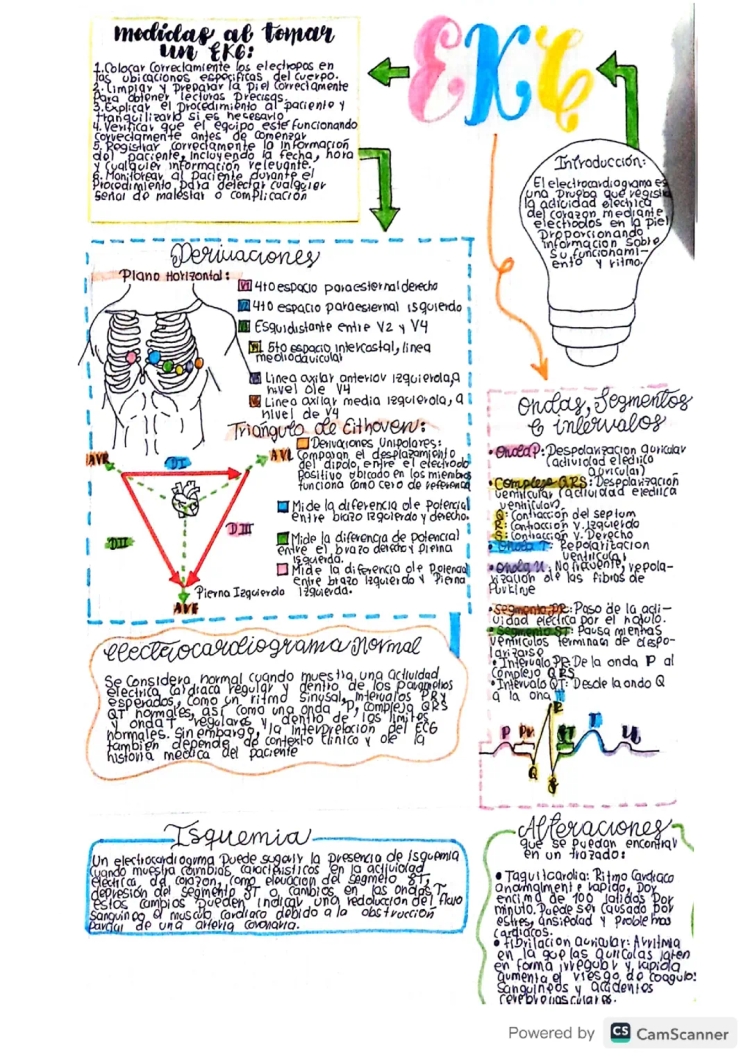 EKG
medidas al tomar
un EKG:
1. Colocar Correctamente los electropos en
las ubicaciones especificas del cuerpo.
2. Limpiar y Preparar la Piel correctamente
Para obtener lecturas Precisas.
3. Explicar el Procedimiento al paciente y
tranquilizarlo si es necesario
4. Verificar que el equipo este funcionando
correctamente antes de comenzar
5. Registrar correctamente la informacion
del paciente, incluyendo la fecha, hora
y cualquier informacion relevante.
6. Monitorear al Paciente durante el
Procedimiento para detectar cualquier
señal de malestar o complicación
Introducción:
El electrocardiograma es
una Prueba que registra
la actividad electrica
del corazon mediante
electrodos en la piel
Proporcionando
informacion sobre
su funcionami-
ento y ritmo.
Derivaciones
Plano Horizontal:
V1 4to espacio paraesternal derecho
V2 4to espacio paraesternal isquierdo
Esquidistante entre V2 y V4
5to espacio intercostal, linea
medioclavicular
Linea axilar anterior izquierda, a
nivel de V4
Linea axilar media izquierda, a
nivel de V4
Triangulo de Eithoven:
AVR
DI
AVL
DII
DIII
AVF
Pierna Izquierdo
Derivaciones Unipolares:
Comparan el desplazamiento
del dipolo, entre el electrodo
positivo ubicado en los miembros
funciona como cero de referencia
Mide la diferencia de potencial
entre brazo izquierdo y derecho.
Mide la diferencia de potencial
entre el brazo derecho y pierna
izquierda.
Mide la diferencia de Potencial
entre brazo Izquierdo y Pierna
Izquierda.
Ondas, Segmentos
e intervalos
• Onda P: Despolarizacion auricular
(actividad electrica
auricular)
• Complejo QRS: Despolarización
ventricular (actividad electrica
ventricular)
Q: Contraccion del septum
R: Contraccion V. Izquierdo
S: Contraccion V. Derecho
• Onda T: Repolarizacion
ventricular
• Onda U: No frecuente, repola-
rización de las fibras de
Purkinje
• Segmento PR: Paso de la acti-
vidad electrica por el nodulo.
• Segmento ST: Pausa mientras
ventriculos terminan de despo-
larizarse
• Intervalo PR: De la onda P al
complejo QRS
• Intervalo QT: Desde la onda Q
a la ona T
P PR R ST T U
Q S
electrocardiograma Normal
Se Considera normal cuando muestra una actividad
electrica cardiaca regular y dentro de los Parametros
esperados, como un ritmo sinusal, intervalos PR y
QT normales, asi como una onda P, complejo QRS
y onda T regulares y dentro de los limites
normales. Sin embargo, la interpretacion del ECG
tambien depende de contexto clinico y de la
historia medica del paciente
Isquemia
Un electrocardiograma puede sugerir la presencia de isquemia
cuando muestra cambios caracteristicos en la actividad
electrica del corazon, como elevacion del segmento ST,
depresion del segmento ST o cambios en las ondas T.
estos cambios pueden indicar una reduccion del flujo
sanguineo al musculo cardiaco debido a la obstruccion
parcial de una arteria coronaria.
Alteraciones
que se puedan encontrar
en un trazado:
• Taquicardia: Ritmo Cardiaco
anormalmente rapido, por
encima de 100 latidos Por
minuto. Puede ser causado por
estres, ansiedad y problemas
cardiacos.
• Fibrilacion auricular: Arritmia
en la que las auriculas laten
en forma irregular y rapida
aumenta el riesgo de coagulos
sanguineos y acidentes
cerebrovasculares.
Powered by CS CamScanner